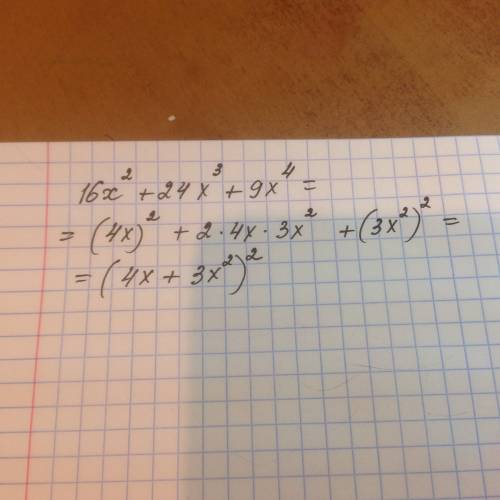 16x² + 24x³ + 9x⁴ =
= (4x)² + 2·4x·3x² + (3x²)² =
= (4x + 3x²)²